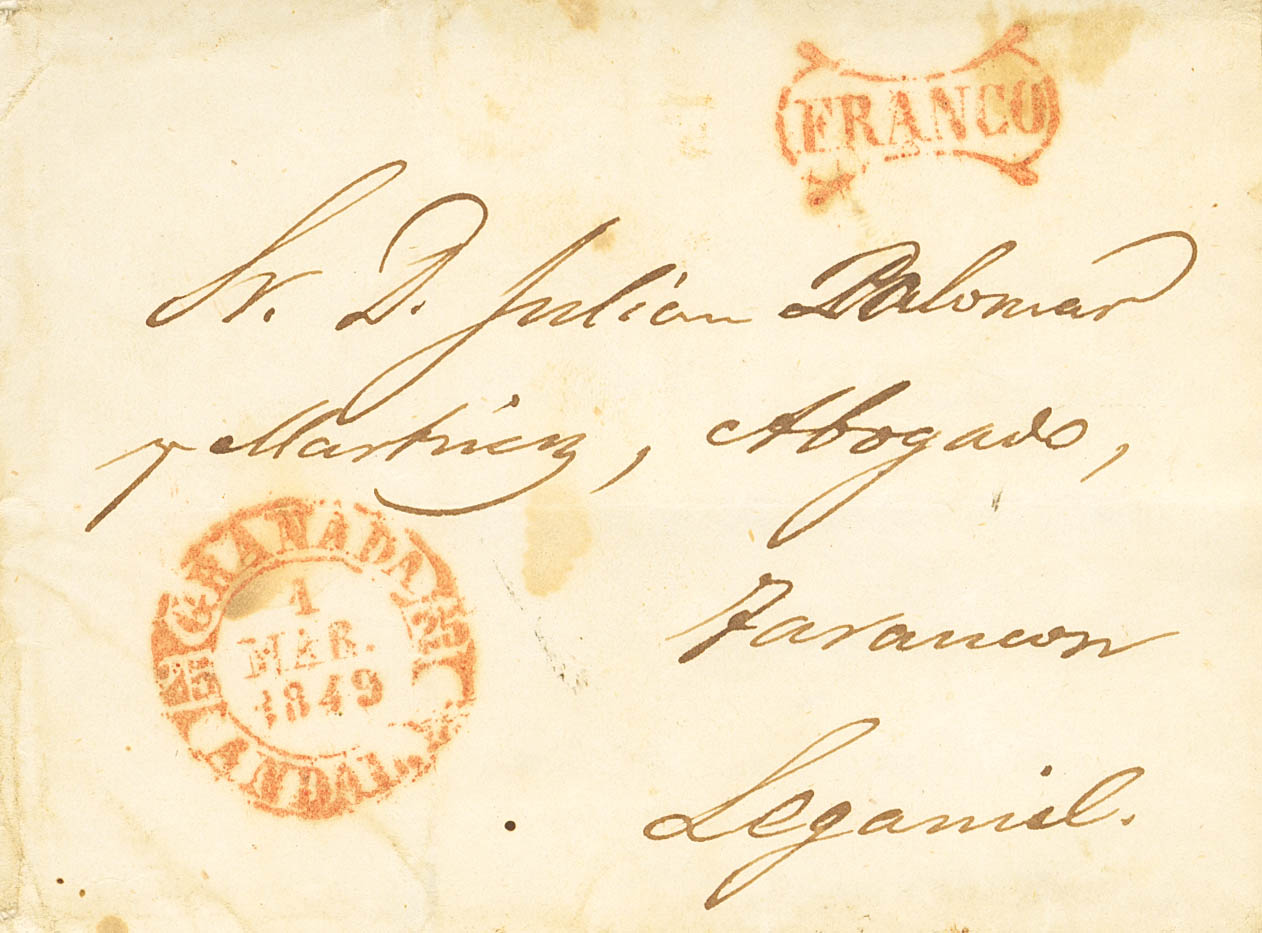 FRANCO
Sr. D. Julian Palomar
y Martinez, Abogado,
GRANADA
1
MAR.
1849
ANDAL. A.
Tarancon
Leganiel.